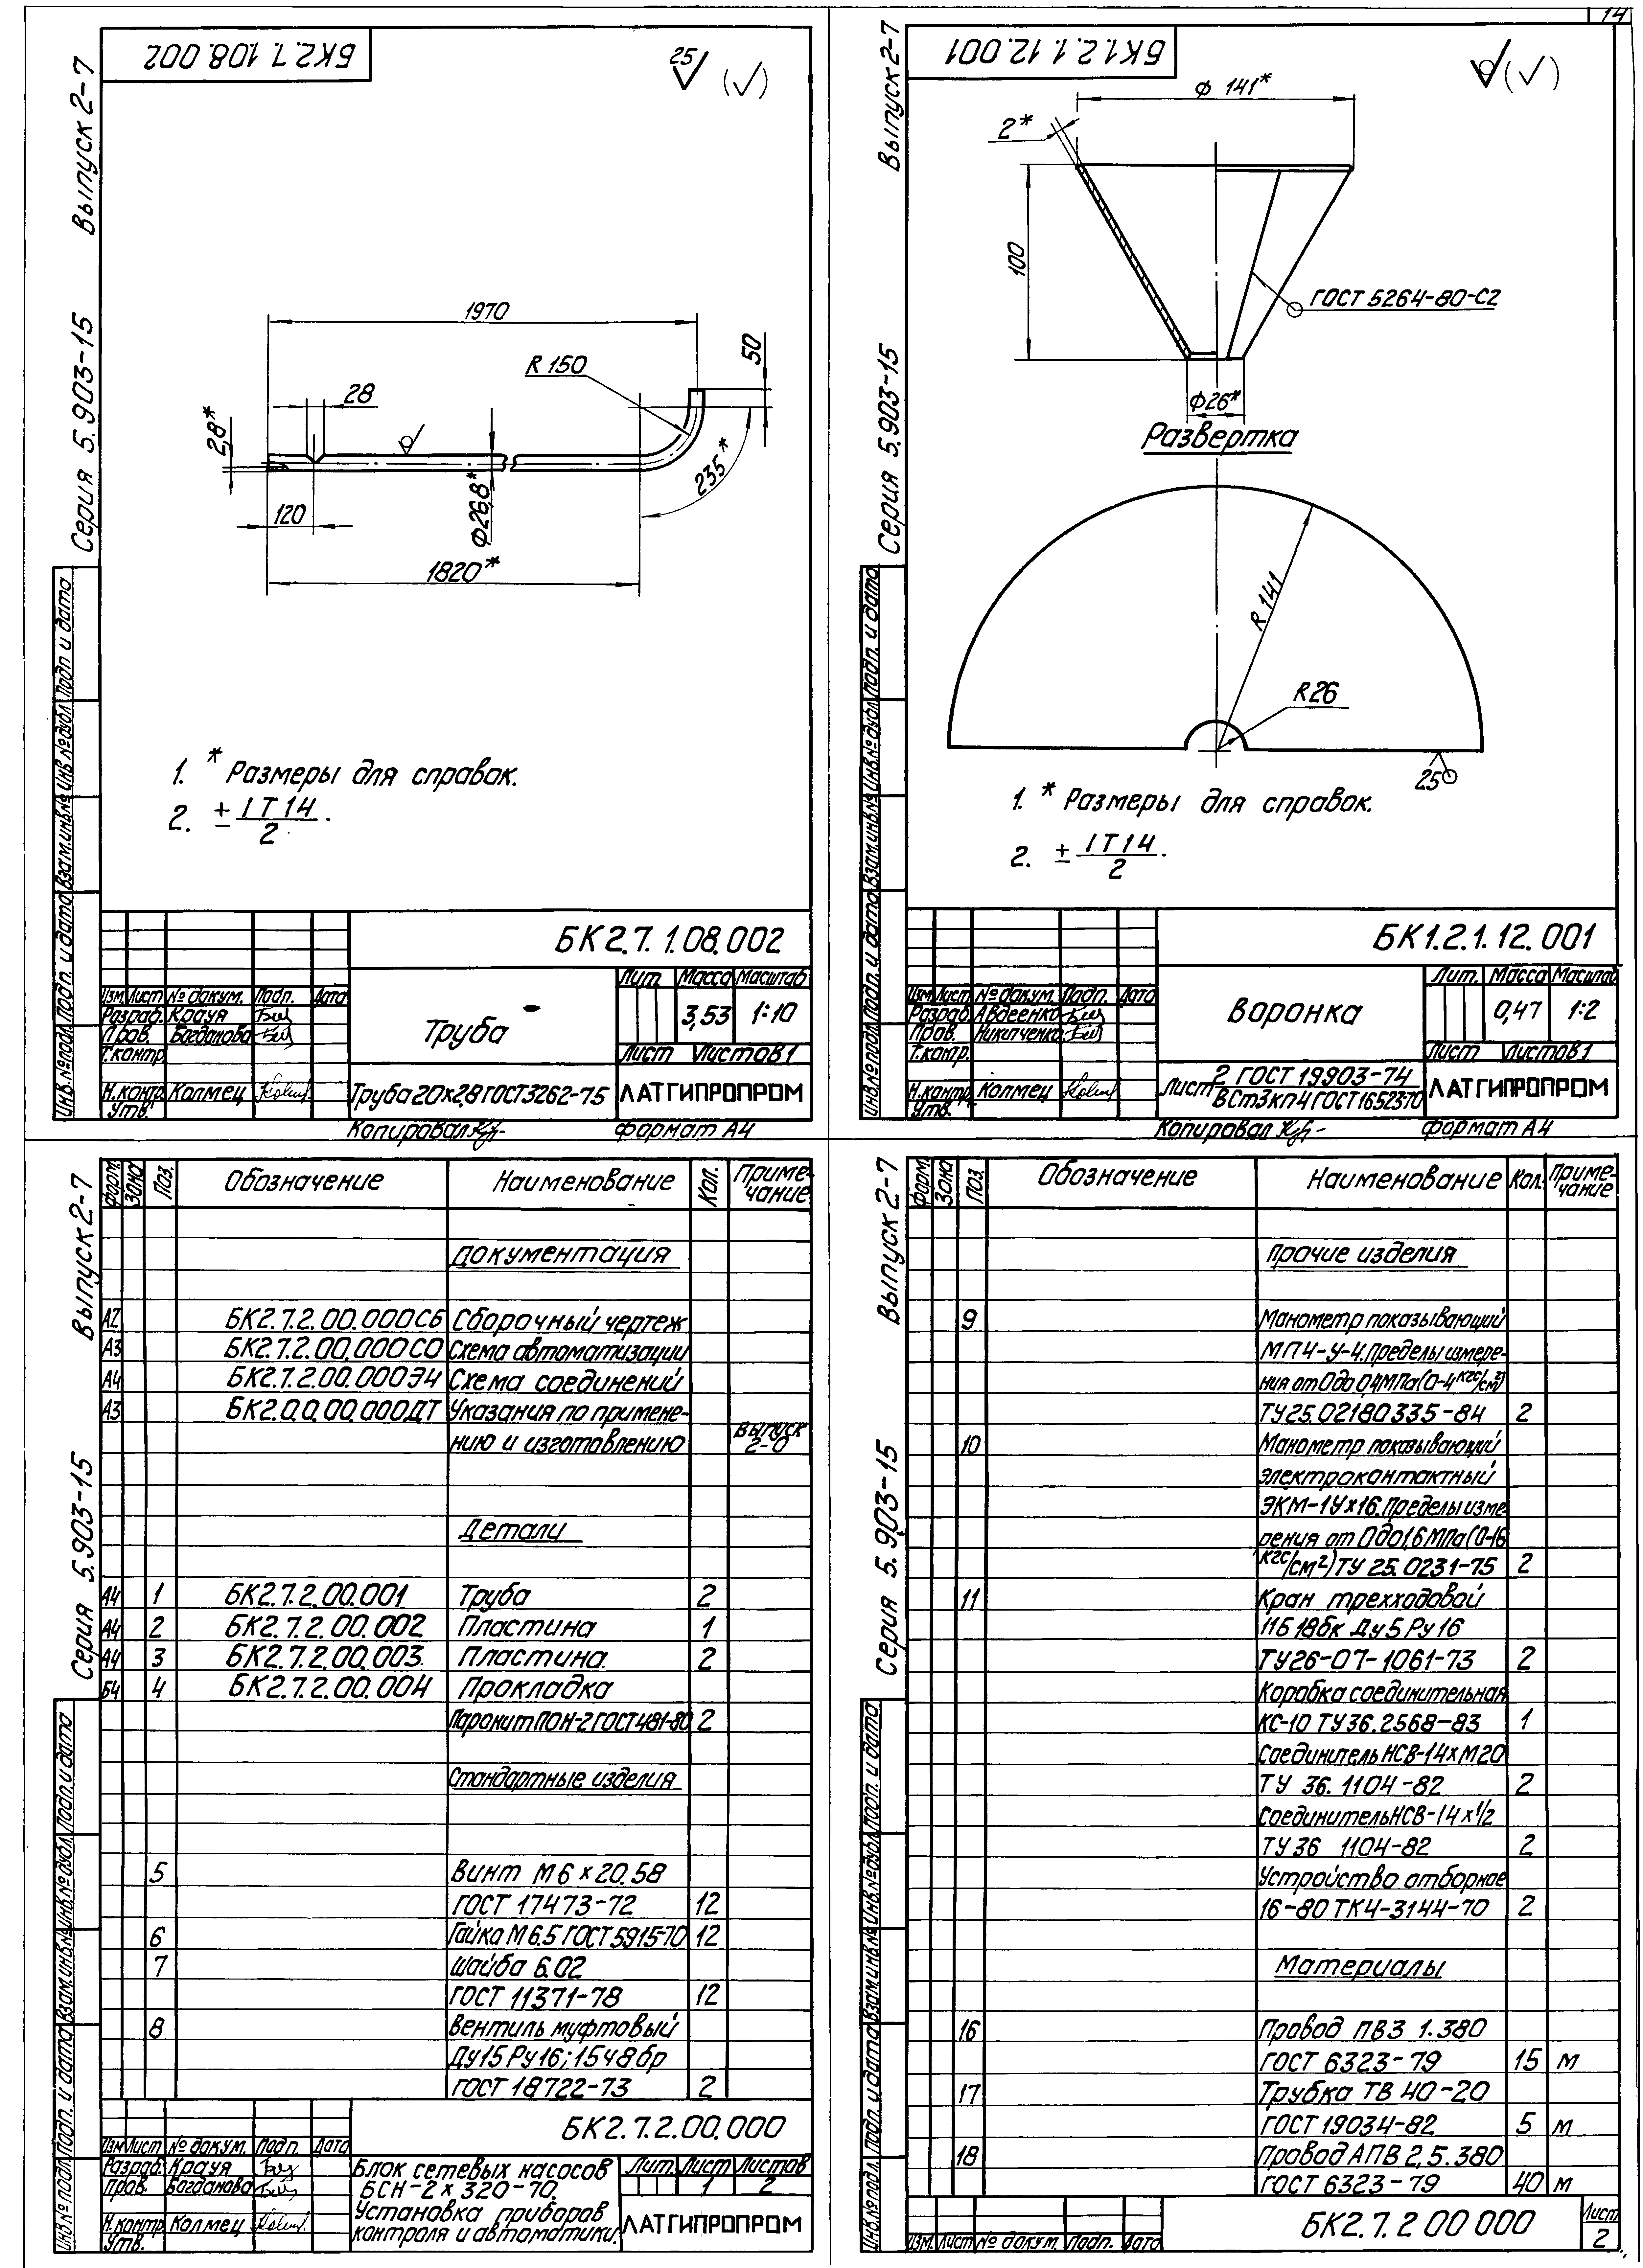 14
БК2.7.1.08.002
Выпуск 2-7
Серия 5.903-15
25
1970
R 150
50
28
2,8*
235*
120
Ф26,8*
1820*
1. * Размеры для справок.
2. ± IT14/2.
Инв.№подл. Подп. и дата Взам.инв.№ Инв.№дубл. Подп. и дата
БК2.7.1.08.002
Изм. Лист № докум. Подп. Дата
Разраб. Крауя
Пров. Богданова
Т.контр.
Н.контр. Колмец
Утв.
Труба
Лит. Масса Масштаб
3,53 1:10
Лист Листов 1
Труба 20х2,8 ГОСТ 3262-75
ЛАТГИПРОПРОМ
Копировал
формат А4
БК1.2.1.12.001
Выпуск 2-7
Серия 5.903-15
Ф 141*
2*
100
ГОСТ 5264-80-С2
Ф26*
Развертка
R 141
R26
25
1. * Размеры для справок.
2. ± IT14/2.
Инв.№подл. Подп. и дата Взам.инв.№ Инв.№дубл. Подп. и дата
БК1.2.1.12.001
Изм. Лист № докум. Подп. Дата
Разраб. Авдеенко
Пров. Никитченко
Т.контр.
Н.контр. Колмец
Утв.
Воронка
Лит. Масса Масштаб
0,47 1:2
Лист Листов 1
Лист 2 ГОСТ 19903-74
ВСт3кп4 ГОСТ 16523-70
ЛАТГИПРОПРОМ
Копировал
формат А4
Выпуск 2-7
Серия 5.903-15
Форм. Зона Поз. Обозначение Наименование Кол. Примечание
Документация
А2 БК2.7.2.00.000СБ Сборочный чертеж
А3 БК2.7.2.00.000СО Схема автоматизации
А4 БК2.7.2.00.000Э4 Схема соединений
А3 БК2.0.0.00.000ДТ Указания по примене-
нию и изготовлению Выпуск 2-0
Детали
А4 1 БК2.7.2.00.001 Труба 2
А4 2 БК2.7.2.00.002 Пластина 1
А4 3 БК2.7.2.00.003. Пластина. 2
Б4 4 БК2.7.2.00.004 Прокладка
Паронит ПОН-2 ГОСТ 481-80 2
Стандартные изделия
5 Винт М6 х 20.58
ГОСТ 17473-72 12
6 Гайка М6.5 ГОСТ 5915-70 12
7 Шайба 6.02
ГОСТ 11371-78 12
8 Вентиль муфтовый
Ду15 Ру16; 15ч8бр
ГОСТ 18722-73 2
Инв.№подл. Подп. и дата Взам.инв.№ Инв.№дубл. Подп. и дата
БК2.7.2.00.000
Изм. Лист № докум. Подп. Дата
Разраб. Крауя
Пров. Богданова
Н.контр. Колмец
Утв.
Блок сетевых насосов
БСН-2х320-70.
Установка приборов
контроля и автоматики.
Лит. Лист Листов
1 2
ЛАТГИПРОПРОМ
Выпуск 2-7
Серия 5.903-15
Форм. Зона Поз. Обозначение Наименование Кол. Примечание
Прочие изделия
9 Манометр показывающий
МП4-У-4. Пределы измере-
ния от 0 до 0,4МПа (0-4 кгс/см²)
ТУ25.02180335-84 2
10 Манометр показывающий
электроконтактный
ЭКМ-1Ух16. Пределы изме-
рения от 0 до 1,6 МПа (0-16
кгс/см²) ТУ 25.0231-75 2
11 Кран трехходовой
11Б18бк Ду5 Ру16
ТУ26-07-1061-73 2
Коробка соединительная
КС-10 ТУ36.2568-83 1
Соединитель НСВ-14хМ20
ТУ 36.1104-82 2
Соединитель НСВ-14х1/2
ТУ 36 1104-82 2
Устройство отборное
16-80 ТК4-3144-70 2
Материалы
16 Провод ПВ3 1.380
ГОСТ 6323-79 15 м
17 Трубка ТВ 40-20
ГОСТ 19034-82 5 м
18 Провод АПВ 2,5.380
ГОСТ 6323-79 40 м
Инв.№подл. Подп. и дата Взам.инв.№ Инв.№дубл. Подп. и дата
Изм. Лист № докум. Подп. Дата
БК2.7.2 00 000
Лист
2